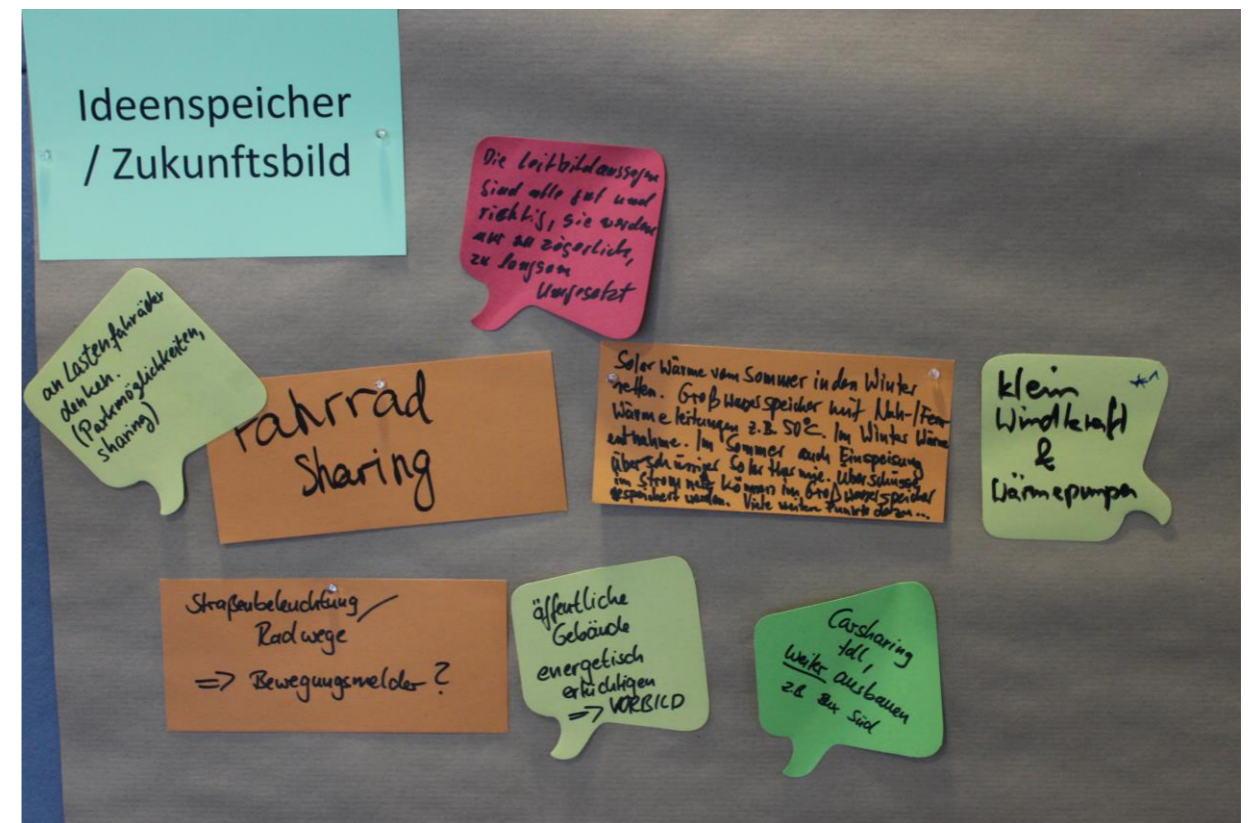 Ideenspeicher
/ Zukunftsbild
Die Leitbildaussagen
sind alle gut und
richtig, sie werden
nur zu zögerlich,
zu langsam
umgesetzt
an Lastenfahräder
denken.
(Parkmöglichkeiten,
sharing)
Fahrrad
Sharing
Solar Wärme vom Sommer in den Winter
retten. Großwasserspeicher mit Nah-/Fern
Wärmeleitungen z.B. 50°C. Im Winter Wärme
entnahme. Im Sommer auch Einspeisung
überschüssiger Solarthermie. Überschüsse
im Stromnetz können im Großwasserspeicher
gespeichert werden. Viele weitere Punkte dazu...
klein
Windkraft
&
Wärmepumpen
Straßenbeleuchtung /
Radwege
=> Bewegungsmelder?
öffentliche
Gebäude
energetisch
ertüchtigen
=> VORBILD
Carsharing
toll,
weiter ausbauen
z.B. Bux Süd